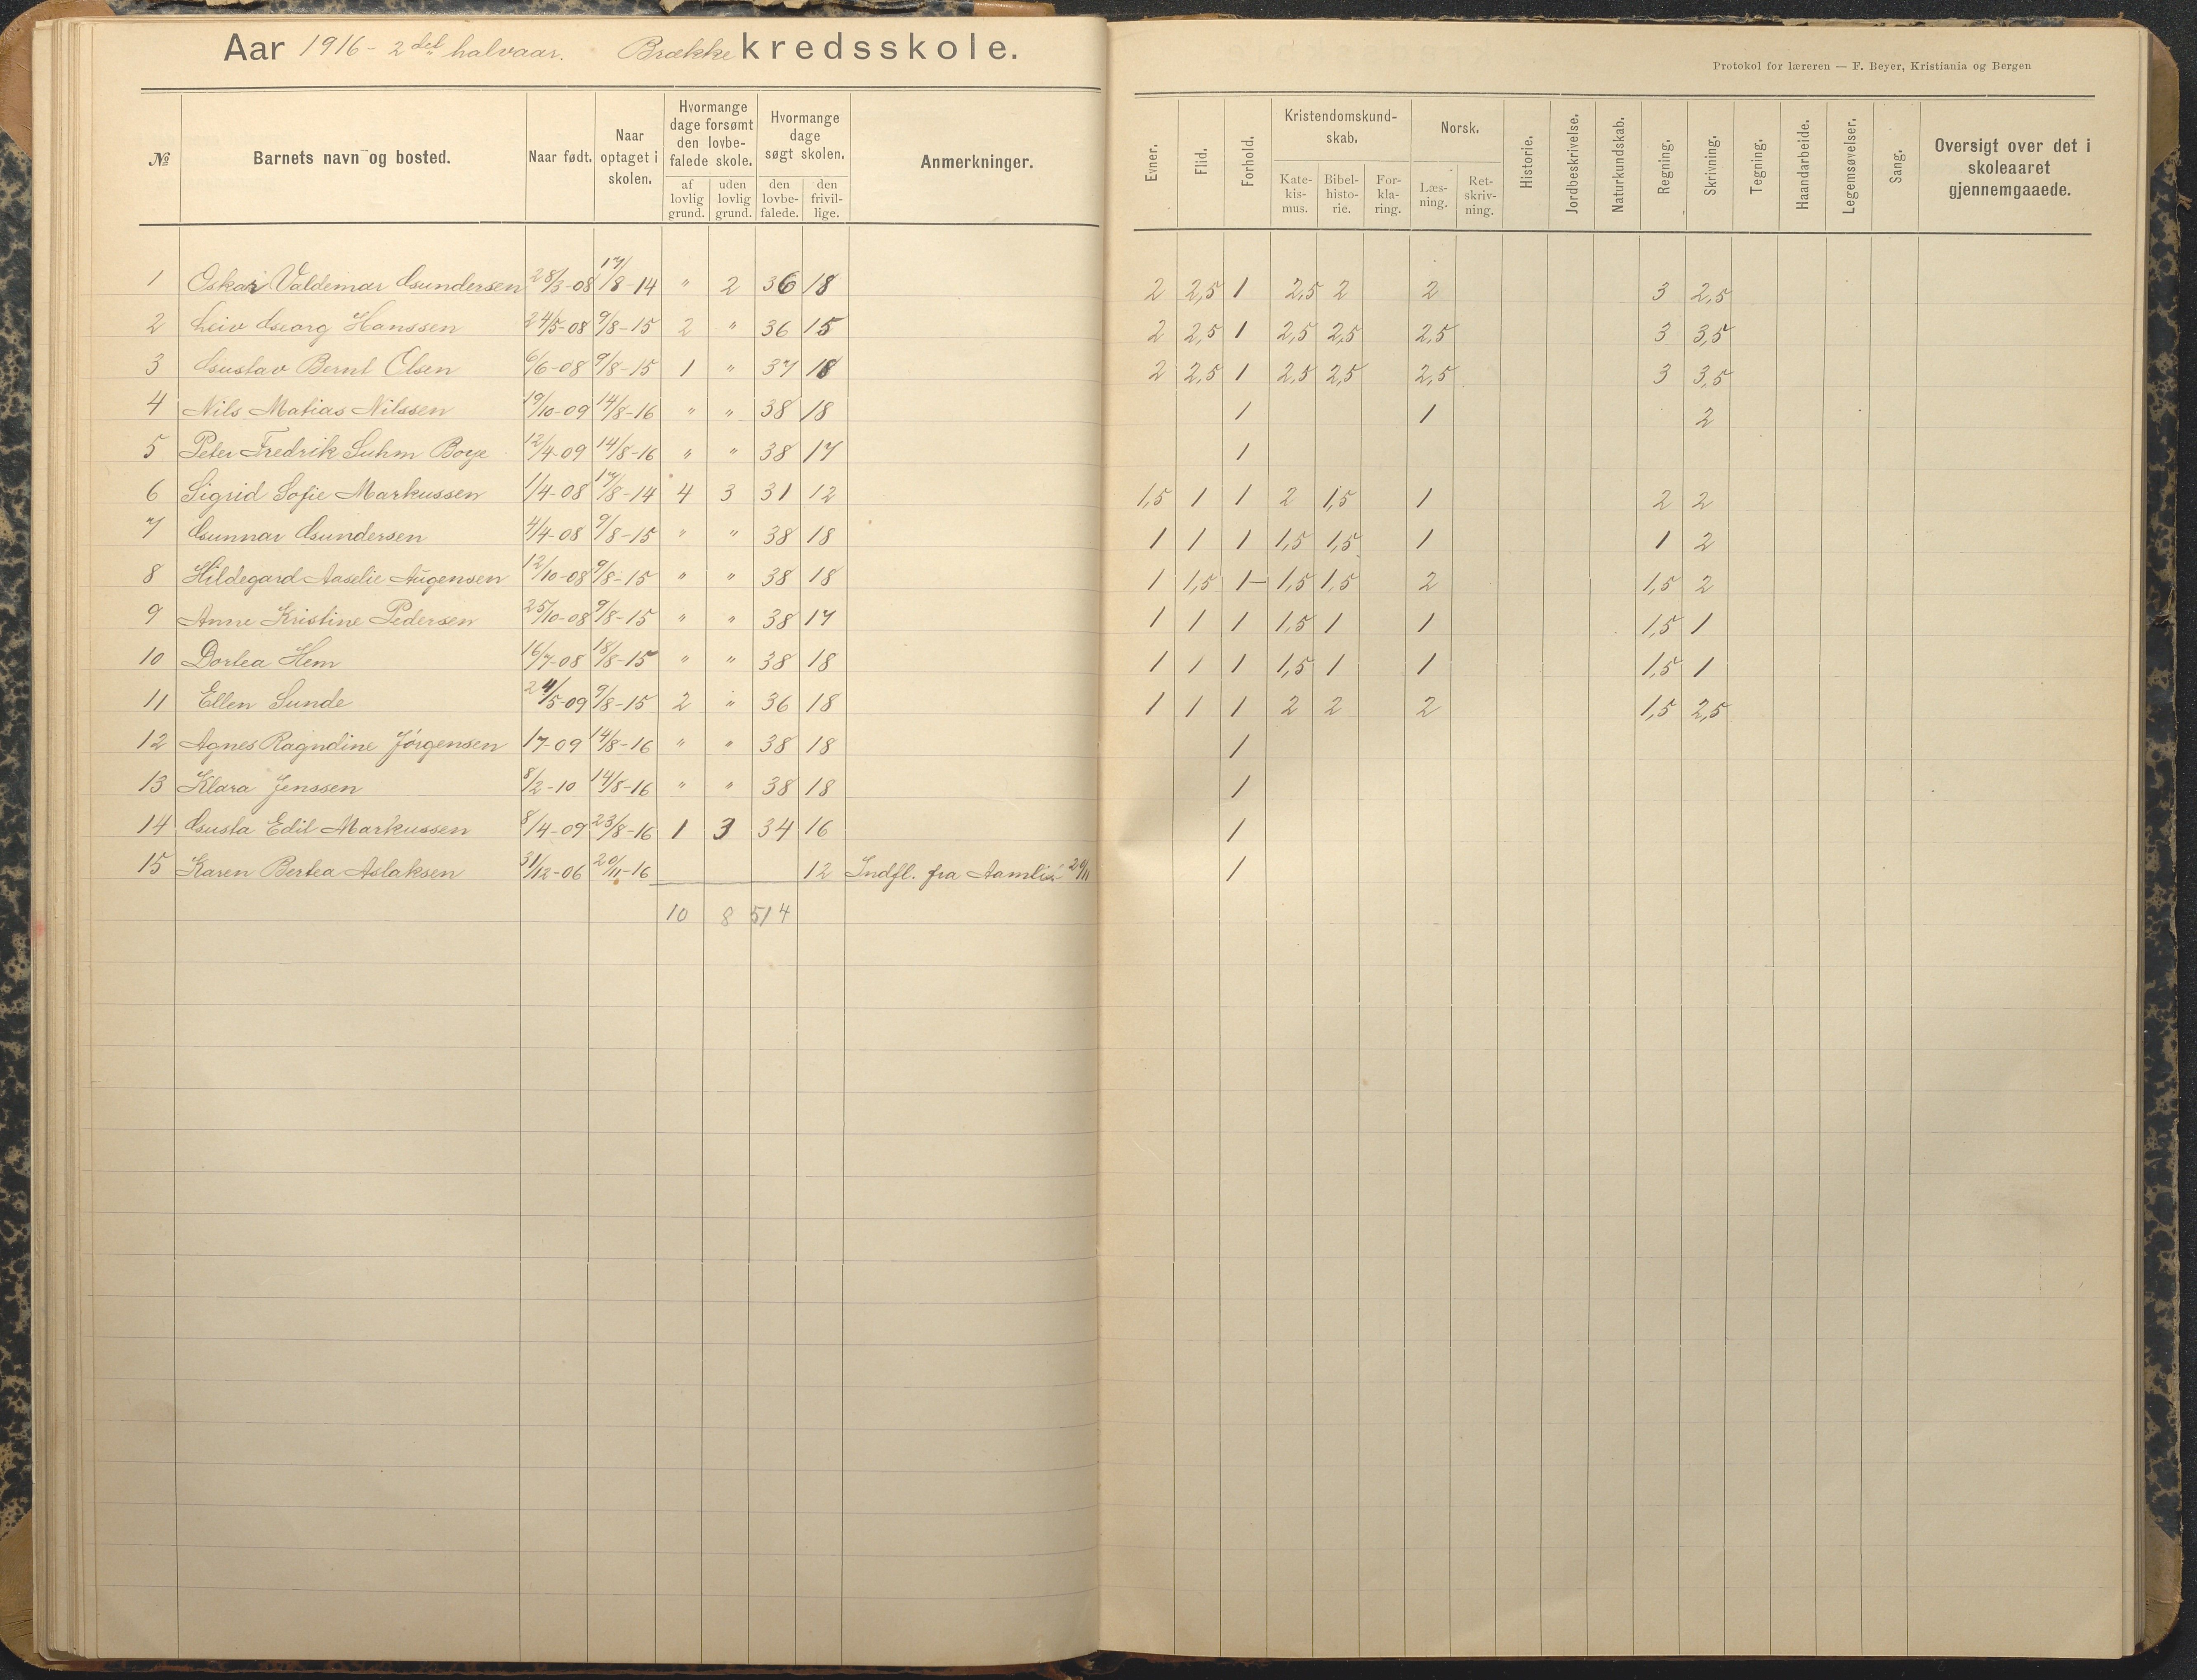 Aar 1916 - 2det halvaar. Brække kredsskole.
Protokol for læreren — F. Beyer, Kristiania og Bergen
№ Barnets navn og bosted. Naar født. Naar optaget i skolen. Hvormange dage forsømt den lovbefalede skole. af lovlig grund. uden lovlig grund. Hvormange dage søgt skolen. den lovbefalede. den frivillige. Anmerkninger. Evner. Flid. Forhold. Kristendomskundskab. Katekismus. Bibelhistorie. Forklaring. Norsk. Læsning. Retskrivning. Historie. Jordbeskrivelse. Naturkundskab. Regning. Skrivning. Tegning. Haandarbeide. Legemsøvelser. Sang. Oversigt over det i skoleaaret gjennemgaaede.
1 Oskar Valdemar Gundersen 28/3-08 17/8-14 " 2 36 18 2 2,5 1 2,5 2 2 3 2,5
2 Leiv Georg Hanssen 24/5-08 9/8-15 2 " 36 15 2 2,5 1 2,5 2,5 2,5 3 3,5
3 Gustav Bernt Olsen 6/6-08 9/8-15 1 " 37 18 2 2,5 1 2,5 2,5 2,5 3 3,5
4 Nils Matias Nilssen 19/10-09 14/8-16 " " 38 18 1 1 2
5 Peter Fredrik Suhm Boye 12/4-09 14/8-16 " " 38 17 1
6 Sigrid Sofie Markussen 1/4-08 17/8-14 4 3 31 12 1,5 1 1 2 1,5 1 2 2
7 Gunnar Gundersen 4/4-08 9/8-15 " " 38 18 1 1 1 1,5 1,5 1 1 2
8 Hildegard Aaselie Augensen 12/10-08 9/8-15 " " 38 18 1 1,5 1- 1,5 1,5 2 1,5 2
9 Anne Kristine Pedersen 25/10-08 9/8-15 " " 38 17 1 1 1 1,5 1 1 1,5 1
10 Dortea Hem 16/7-08 18/8-15 " " 38 18 1 1 1 1,5 1 1 1,5 1
11 Ellen Sunde 24/5-09 9/8-15 2 " 36 18 1 1 1 2 2 2 1,5 2,5
12 Agnes Ragndine Jørgensen 17-09 14/8-16 " " 38 18 1
13 Klara Jenssen 8/2-10 14/8-16 " " 38 18 1
14 Gusta Edit Markussen 8/4-09 23/8-16 1 3 34 16 1
15 Karen Bertea Aslaksen 31/12-06 20/11-16 12 Indfl. fra Aamli 20/11 1
10 8 514